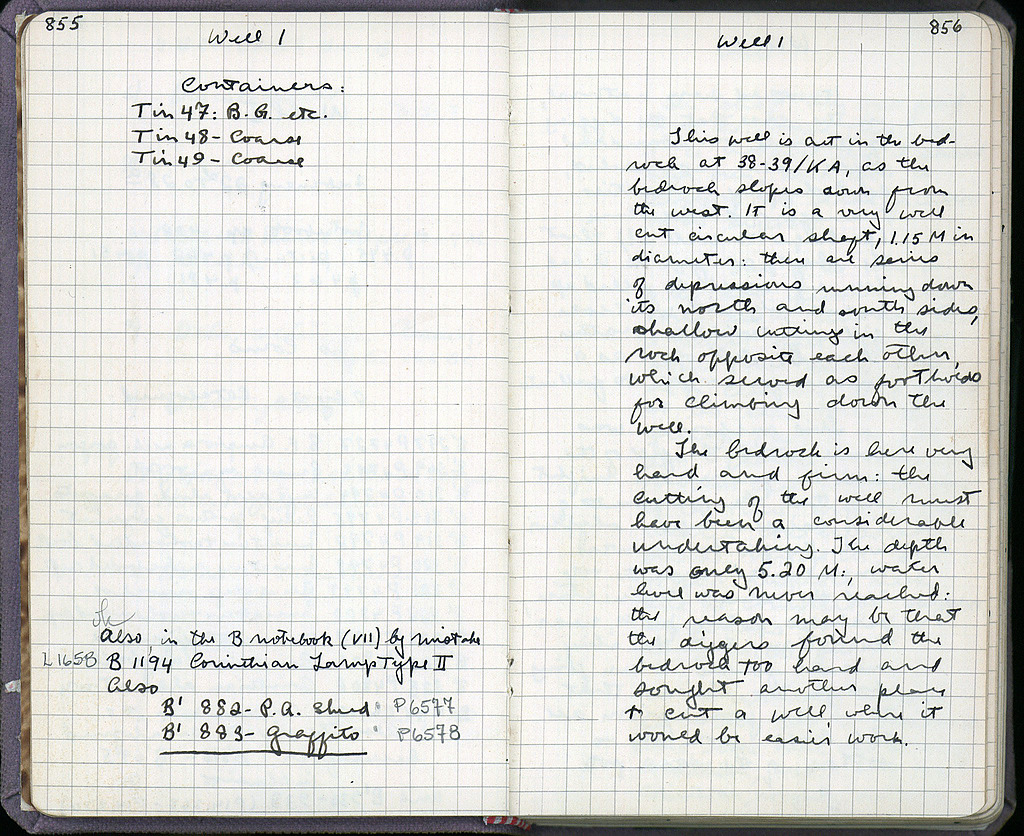 855
Well 1
Containers:
Tin 47: B.G. etc.
Tin 48 - Coarse
Tin 49 - Coarse
ok
Also in the B notebook (VII) by mistake
L1658 B 1194 Corinthian Lamp Type II
Also
B' 882 - P.A. Sherd P6577
B' 883 - Graffito P6578
856
Well 1
This well is cut in the bed-
rock at 38-39/KA, as the
bedrock slopes down from
the west. It is a very well
cut circular shaft, 1.15 M in
diameter: there are series
of depressions running down
its north and south sides,
shallow cuttings in the
rock opposite each other,
which served as footholds
for climbing down the
well.
The bedrock is here very
hard and firm: the
cutting of the well must
have been a considerable
undertaking. The depth
was only 5.20 M:, water
level was never reached:
the reason may be that
the diggers found the
bedrock too hard and
sought another place
to cut a well where it
would be easier work.